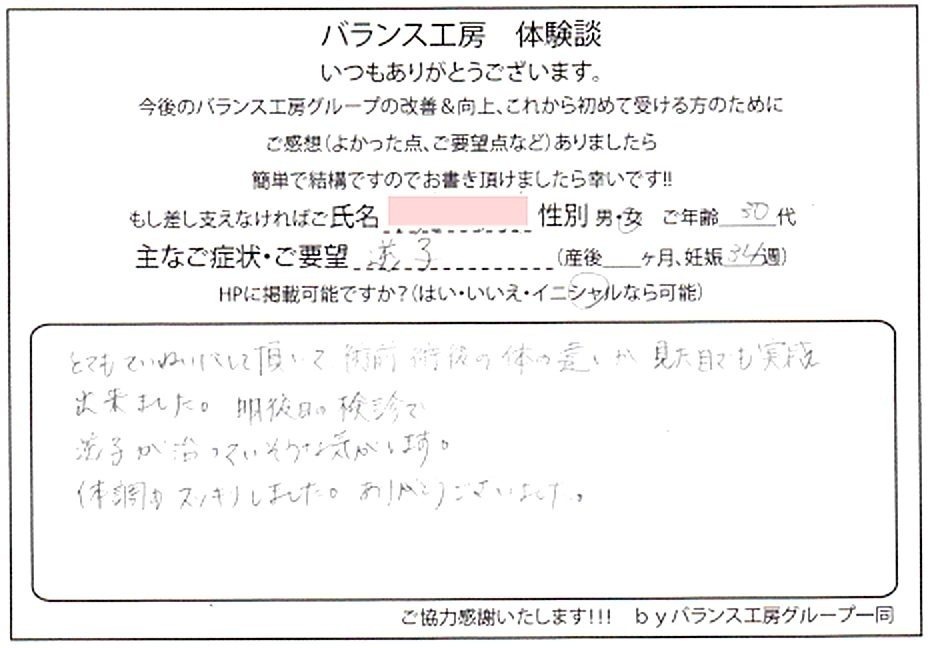 バランス工房 体験談
いつもありがとうございます。
今後のバランス工房グループの改善&向上、これから初めて受ける方のために
ご感想(よかった点、ご要望点など)ありましたら
簡単で結構ですのでお書き頂けましたら幸いです!!
もし差し支えなければご氏名 性別 男・女 ご年齢 30代
主なご症状・ご要望 逆子 (産後 ヶ月、妊娠34週)
HPに掲載可能ですか?(はい・いいえ・イニシャルなら可能)
とてもていねいにして頂いて 術前 術後の体の違いが 見た目でも実感
出来ました。明後日の検診で
逆子が治っていそうな気がします。
体調もスッキリしました。ありがとうございました。
ご協力感謝いたします!!! byバランス工房グループ一同